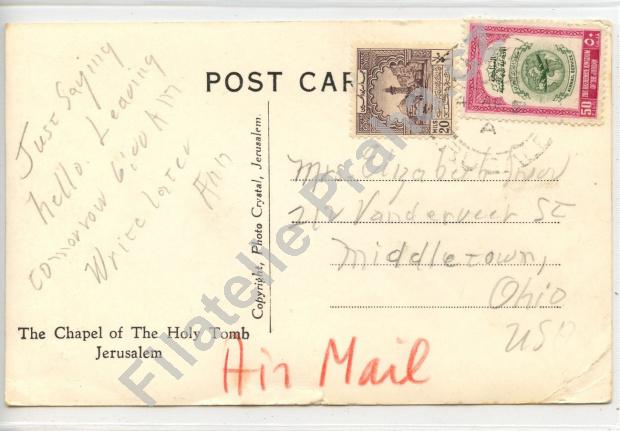 POST CAR
Just Saying
hello Leaving
tomorrow 6:00 AM
Write later
Ann
The Chapel of The Holy Tomb
Jerusalem
Copyright, Photo Crystal, Jerusalem.
20
MILS
50
THE HASHEMITE KINGDOM
OF THE JORDAN
Elizabeth
Vanderveer St
Middletown,
Ohio
USA
Air Mail
Filatelie Praha